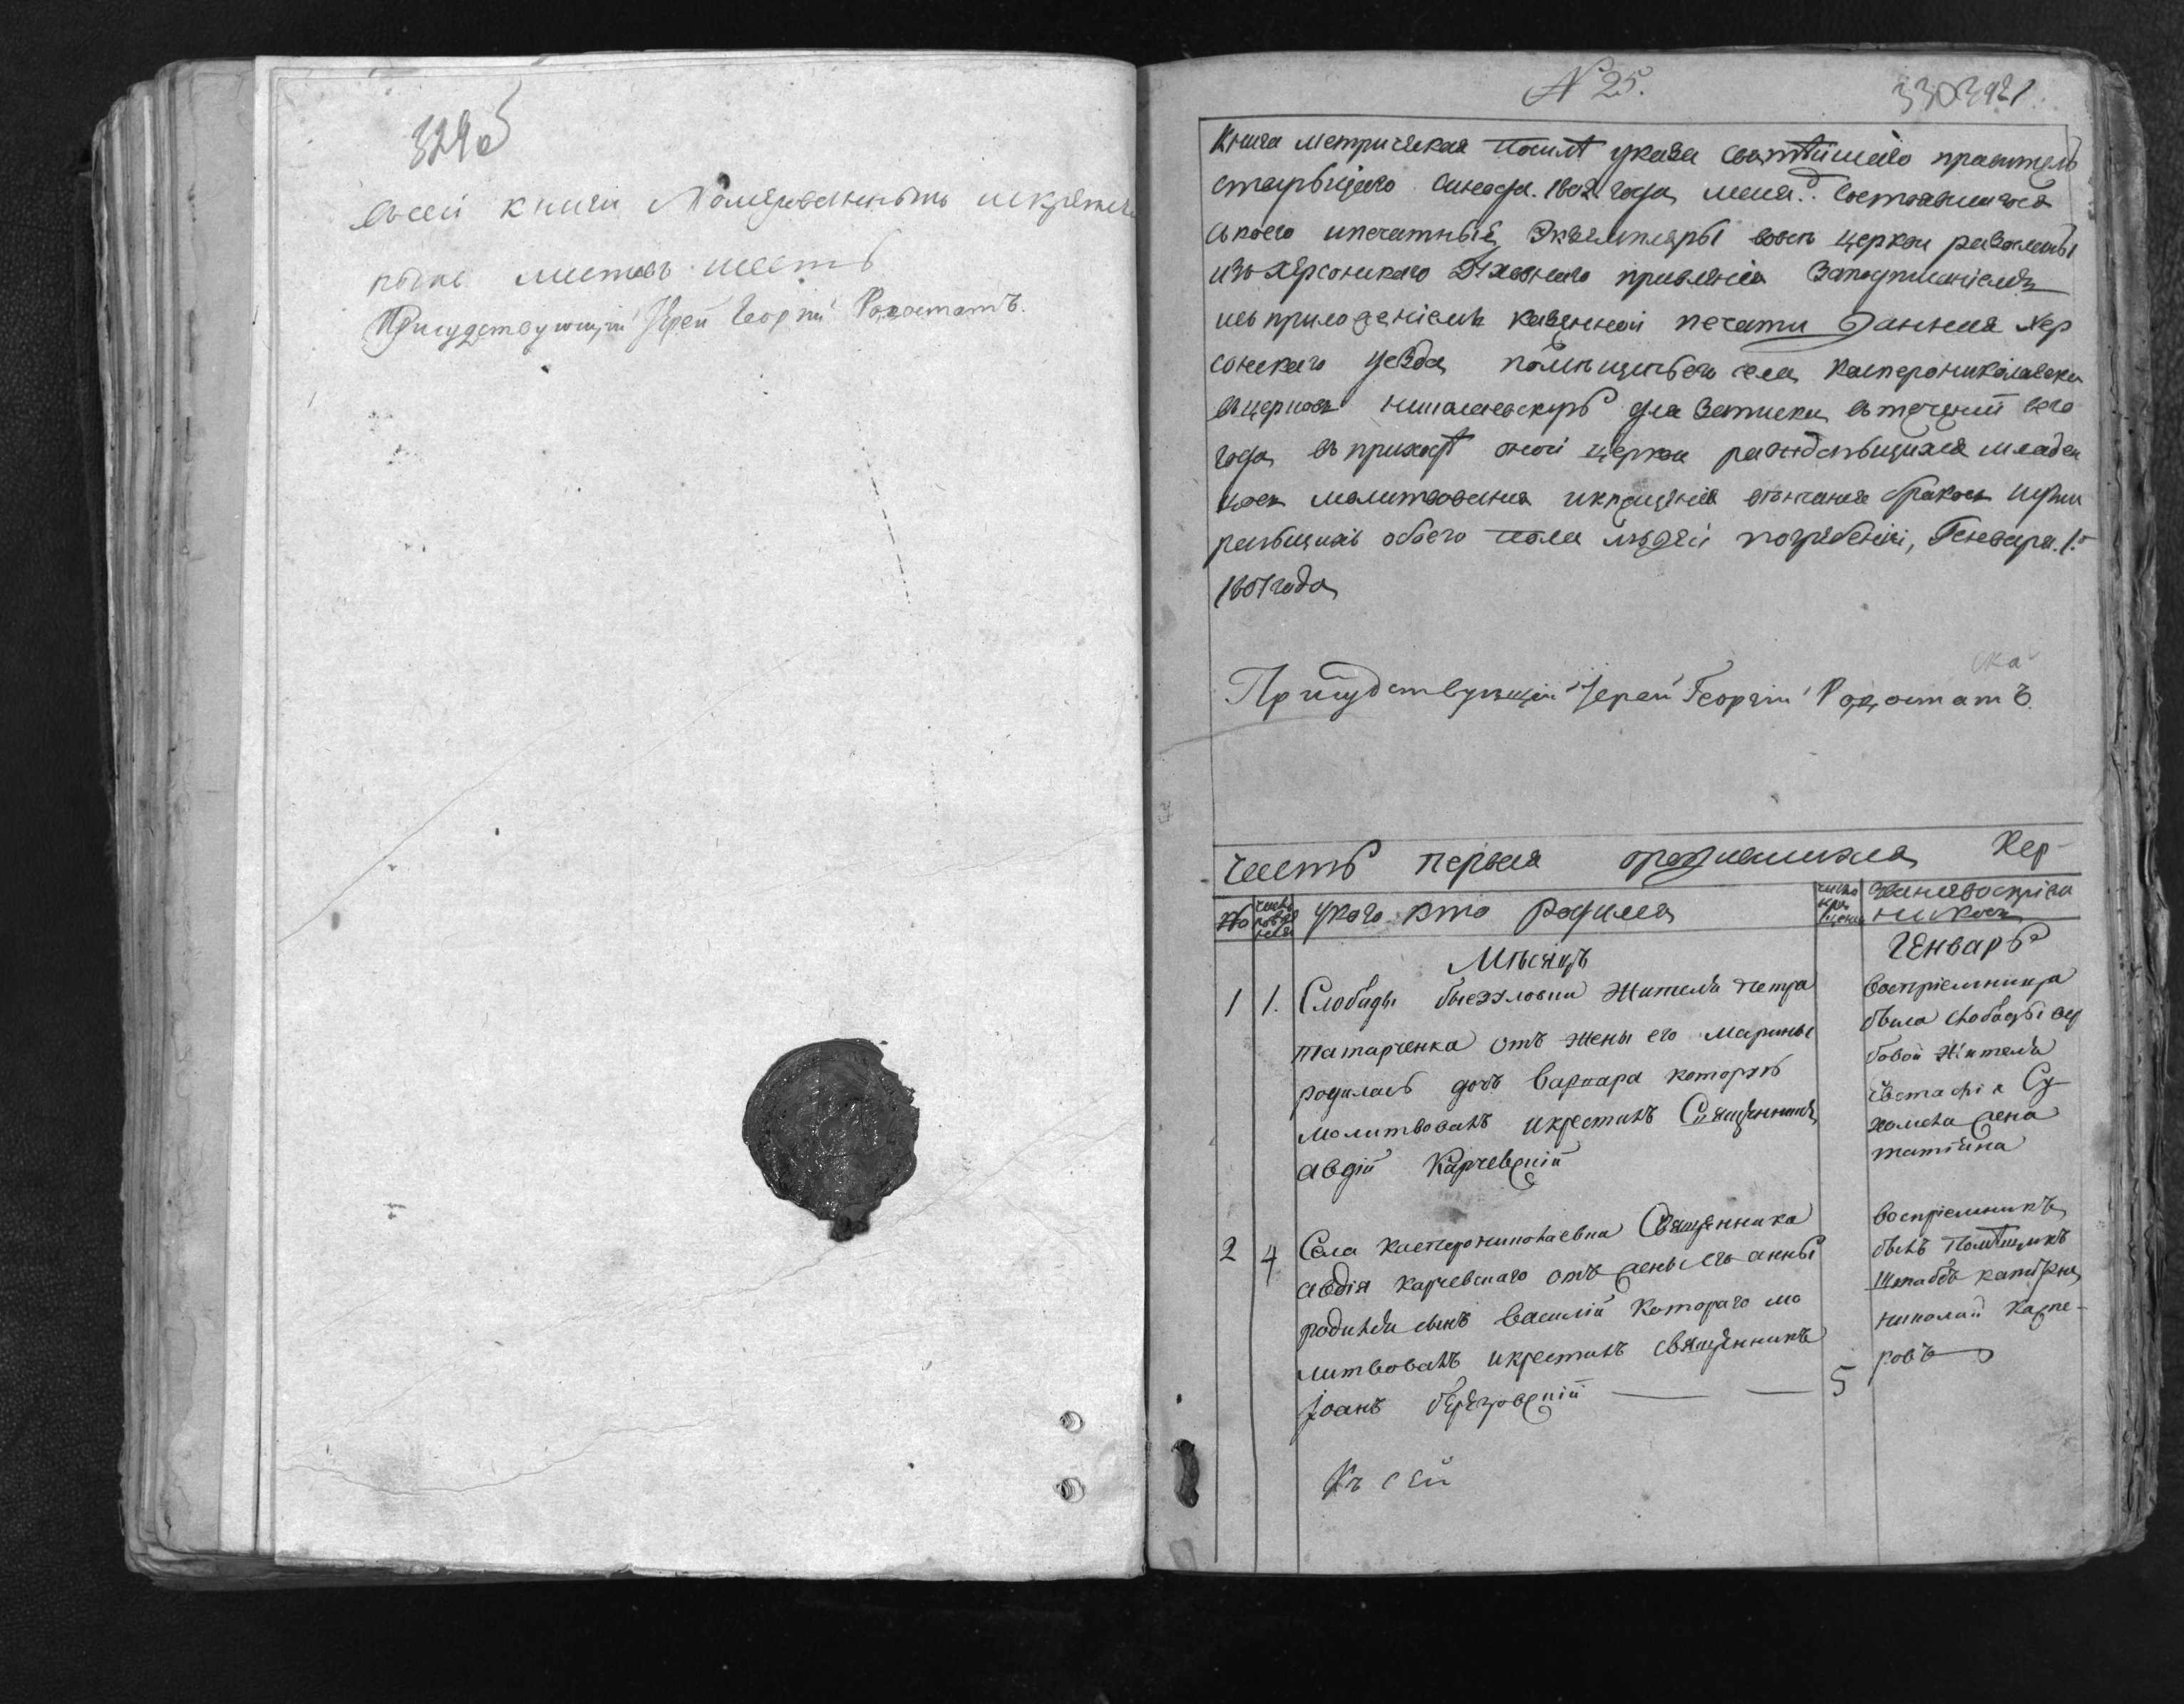 329об
въсей книги номерованныхъ искрепле
ныхъ листовъ шесть
Присудствующій Іерей Георгій Родостатъ.
N 25.
330 3921
Книга Метрическая посилѣ указа святѣйшаго правитель
ствующаго Синода 1802 года состоявшагося
скоего ипечатный Экземпляры повсѣ церкви разосланы
изъ Херсонскаго Духовнаго правленія Заподписаніемъ
исъ приложеніемъ казенной печати Данная Хер
сонскаго уѣзда помѣщичьего села Касперониколаевки
въцерковь николаевскую для Записки втеченіи сего
года въ приходѣ оной церкви раждающихся младен
цовъ молитвованія икрещенія вѣнчанія браковъ иуми
рающихъ обоего пола людей погребеніи, Генваря 1.
1807 года
Присудствующій Іерей Георгій Родостатъ
Часть первая ородившихся Хер-
№ число рождения укого кто родился число крещения званиевоспріем
никовъ
Мѣсяцъ Генварь
1 1. Слободы Жителя Петра
татарченка отъ жены его Марины
родилась дочь Варвара которую
молитвовалъ икрестилъ Священникъ
авдій Карчевскій
воспріемница
была слободы вер
бовой жителя
Евстафія Су
хомела жена
татіана
2 4 Села касперониколаевки Священника
авдія карчевскаго отъ жены его анны
родился сынъ Василій Котораго мо
литвовалъ икрестилъ священникъ
Іоанъ березовскій 5
воспріемникъ
былъ помѣщикъ
Штабсъ капитанъ
николай каспе-
ровъ
Къ сей